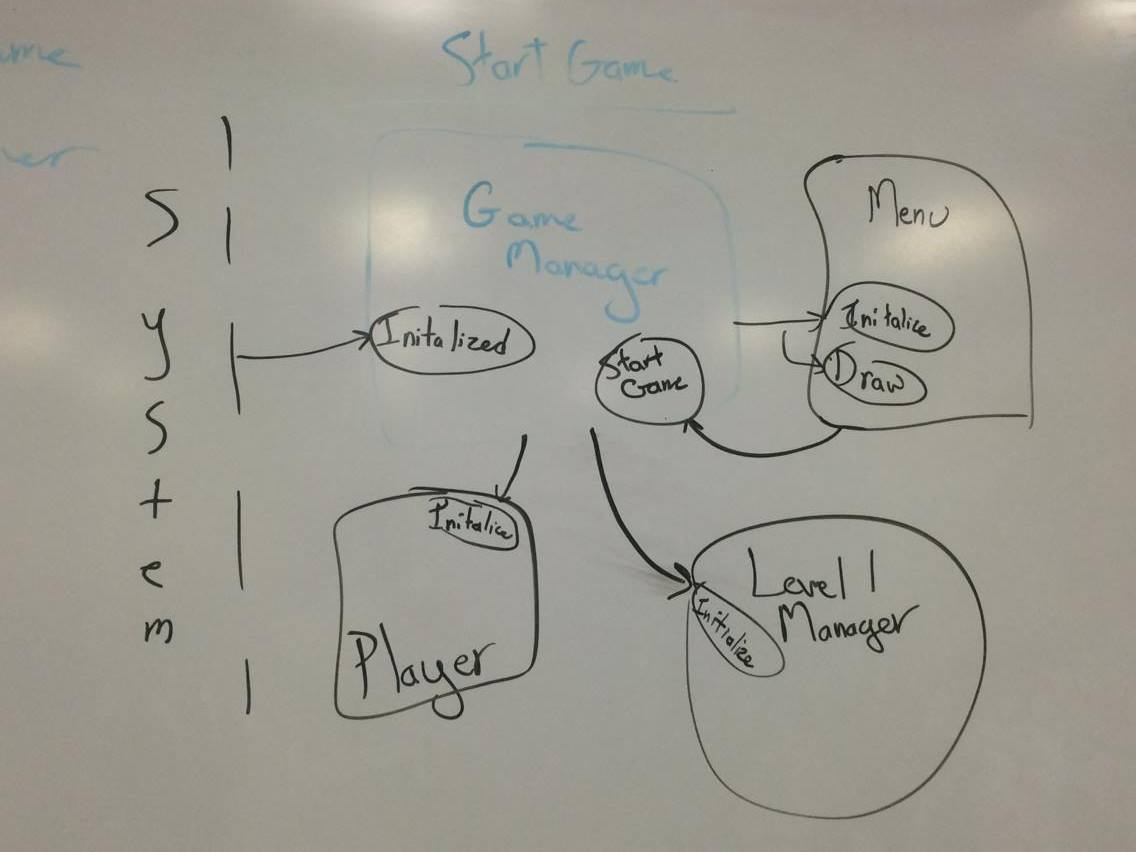 Start Game
System
Game
Manager
Initalized
Start
Game
Menu
Initalice
Draw
Initalice
Player
Level 1
Manager
Initialize